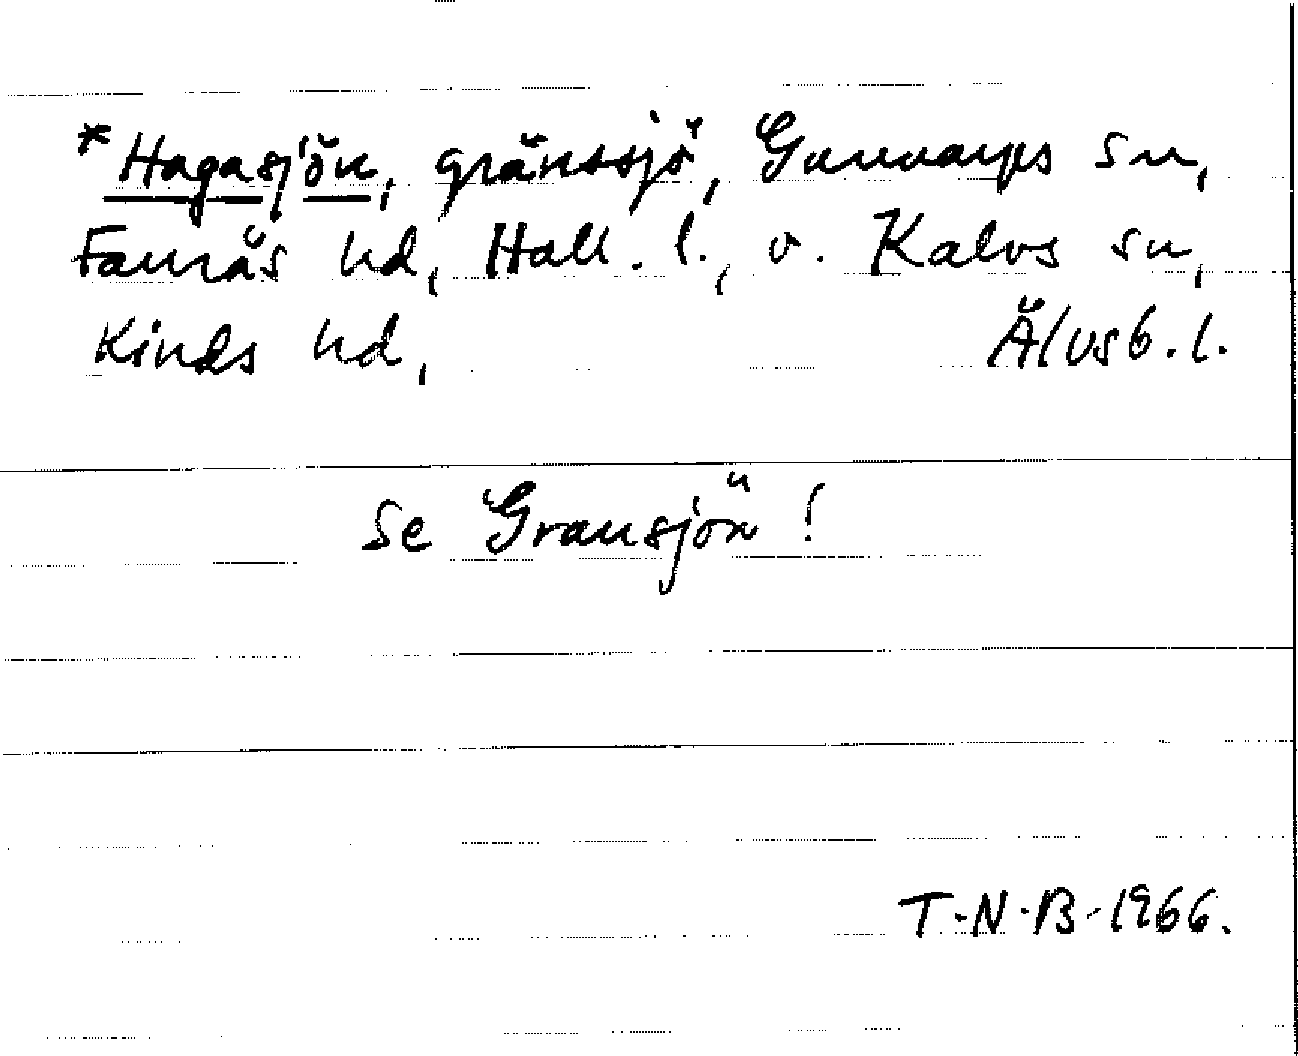 *Hagasjön, gränssjö, Gunnarps sn,
Faurås hd, Hall. l., o. Kalvs sn,
Kinds hd, Älvsb. l.
Se Gransjön!
T.N.B-1966.